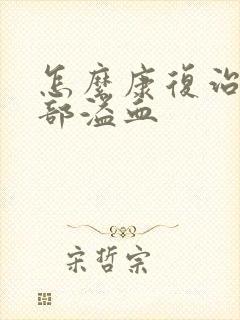 怎麼康復治
部溢血
宋哲宗